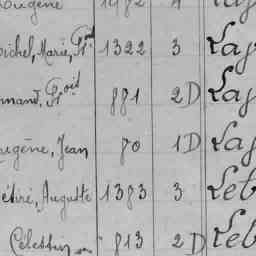 Eugène 1982 4 Laj
Michel, Marie, Fois 1322 3 Laj
rmand, Fois 881 2D Laj
ugène, Jean 70 1D Laj
ésiré, Auguste 1383 3 Leb
Célestin 813 2D Leb